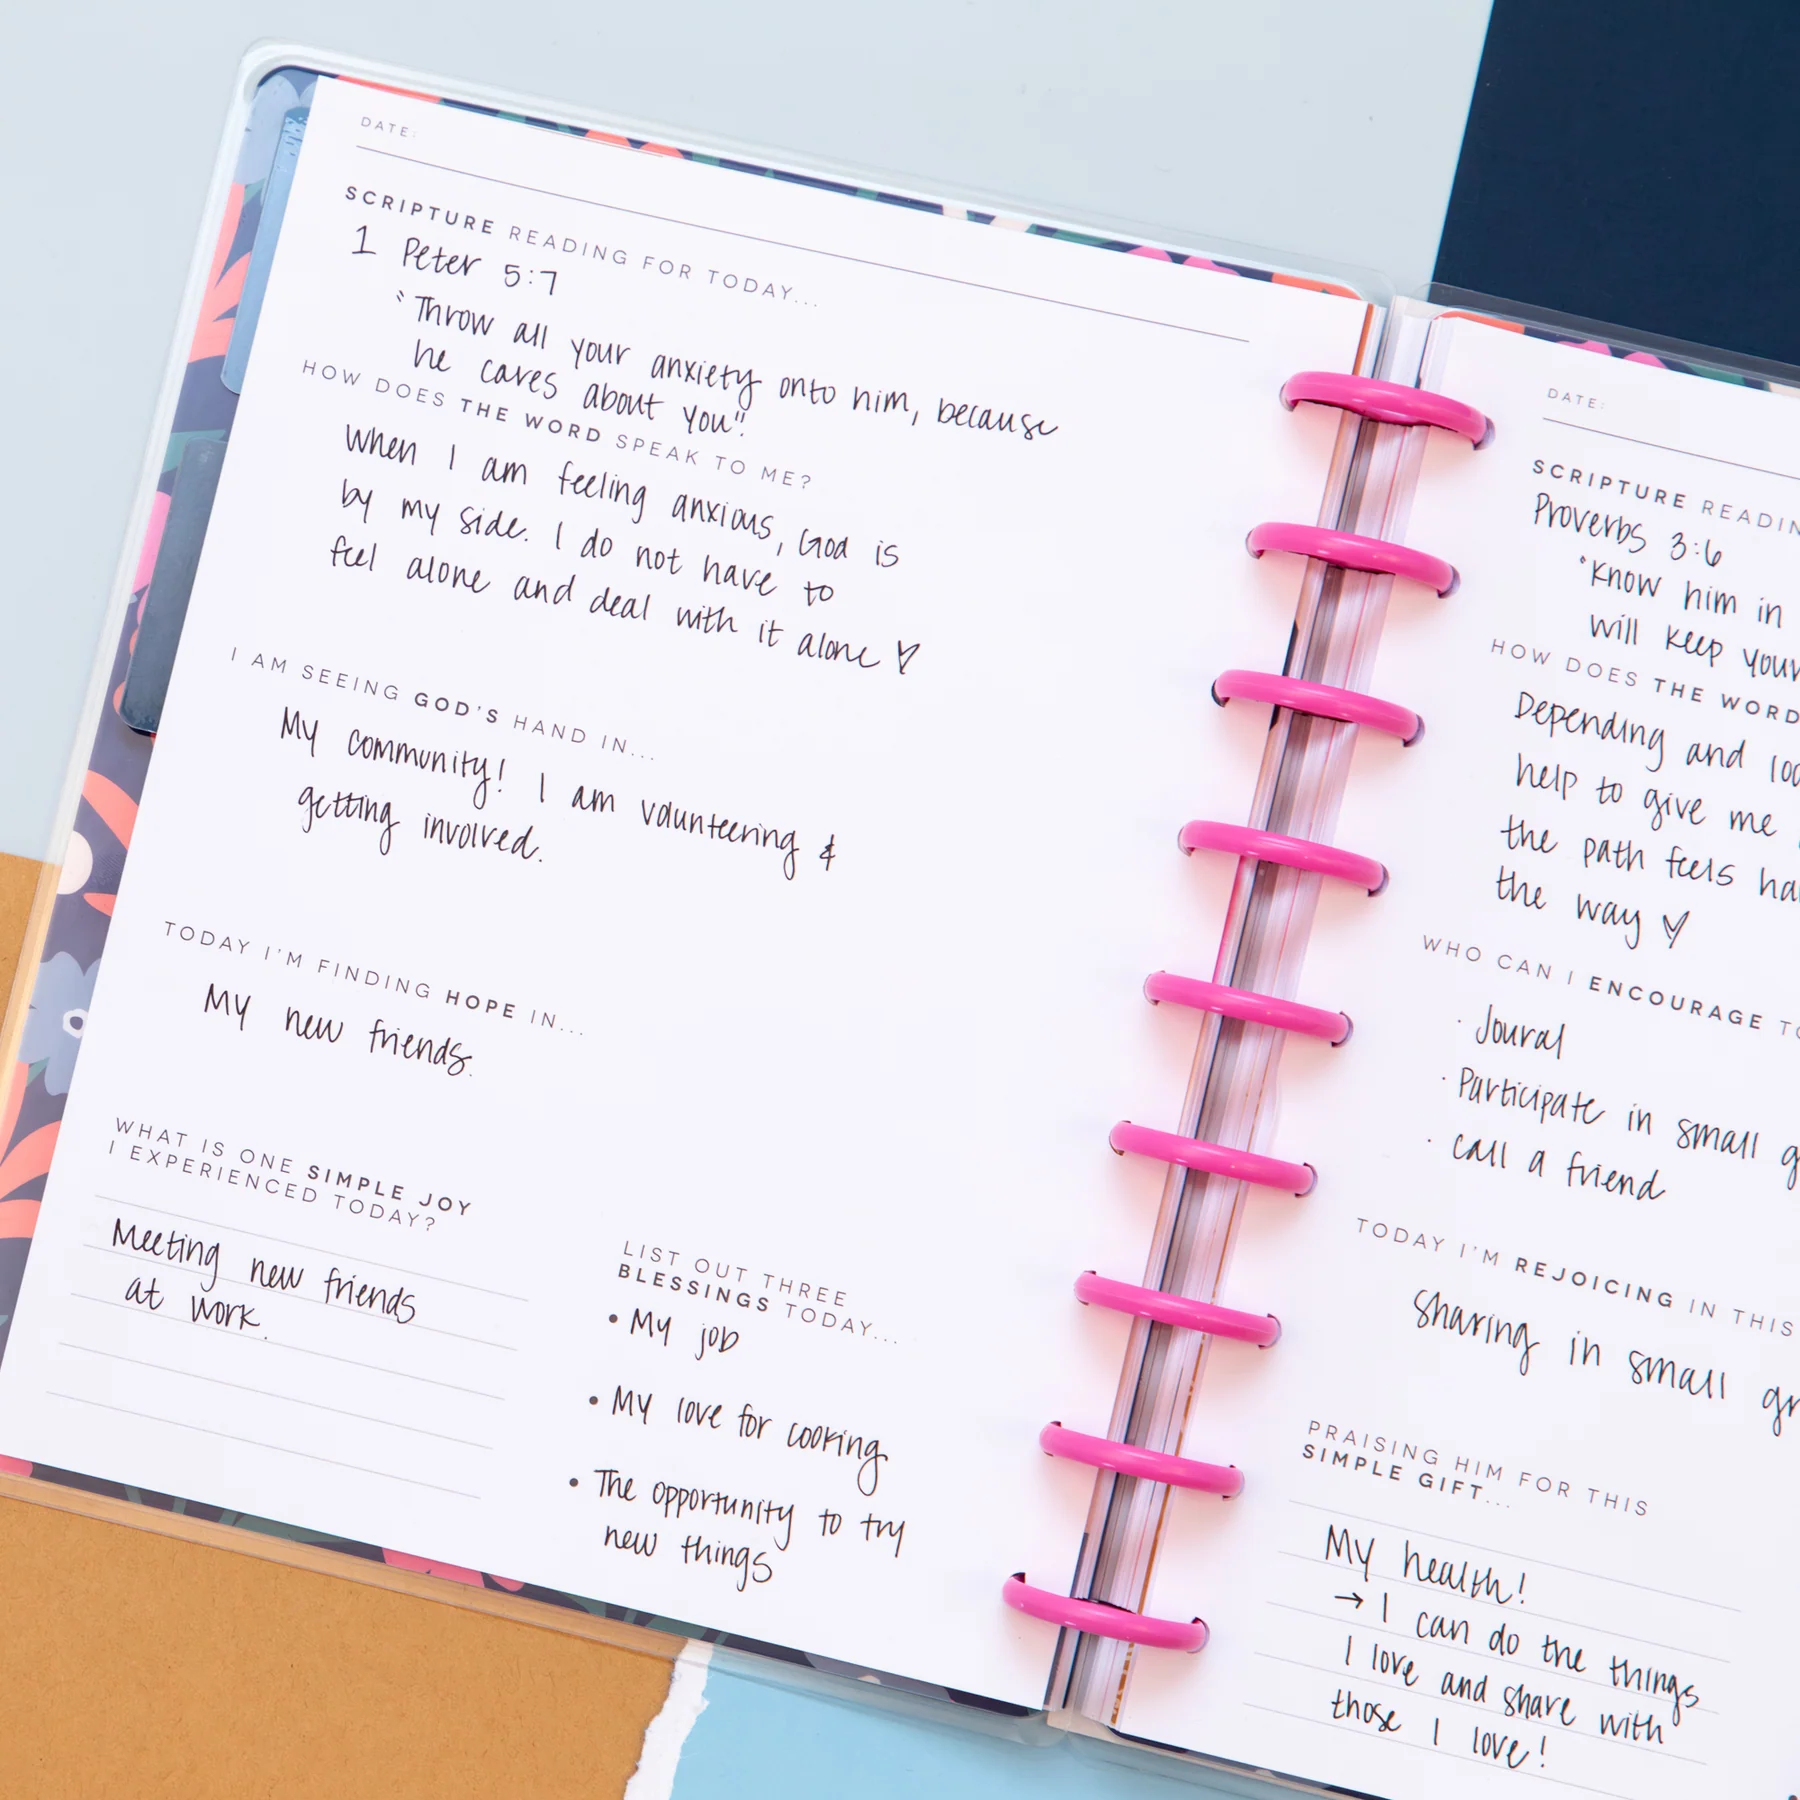 DATE:
SCRIPTURE READING FOR TODAY...
1 Peter 5:7
"Throw all your anxiety onto him, because
he cares about you".
HOW DOES THE WORD SPEAK TO ME?
When I am feeling anxious, God is
by my side. I do not have to
feel alone and deal with it alone
I AM SEEING GOD'S HAND IN...
My community! I am volunteering &
getting involved.
TODAY I'M FINDING HOPE IN...
My new friends.
WHAT IS ONE SIMPLE JOY
I EXPERIENCED TODAY?
Meeting new friends
at work.
LIST OUT THREE
BLESSINGS TODAY...
• My job
• My love for cooking
• The opportunity to try
new things
DATE:
SCRIPTURE
Proverbs 3:6
"Know him in
will keep
HOW DOES THE WORD
Depending and
help to give me
the path feels
the way
WHO CAN I ENCOURAGE
· Joural
· Participate in small
· call a friend
TODAY I'M REJOICING IN THIS
Sharing in small
PRAISING HIM FOR THIS
SIMPLE GIFT...
My health!
→ I can do the things
I love and share with
those I love!